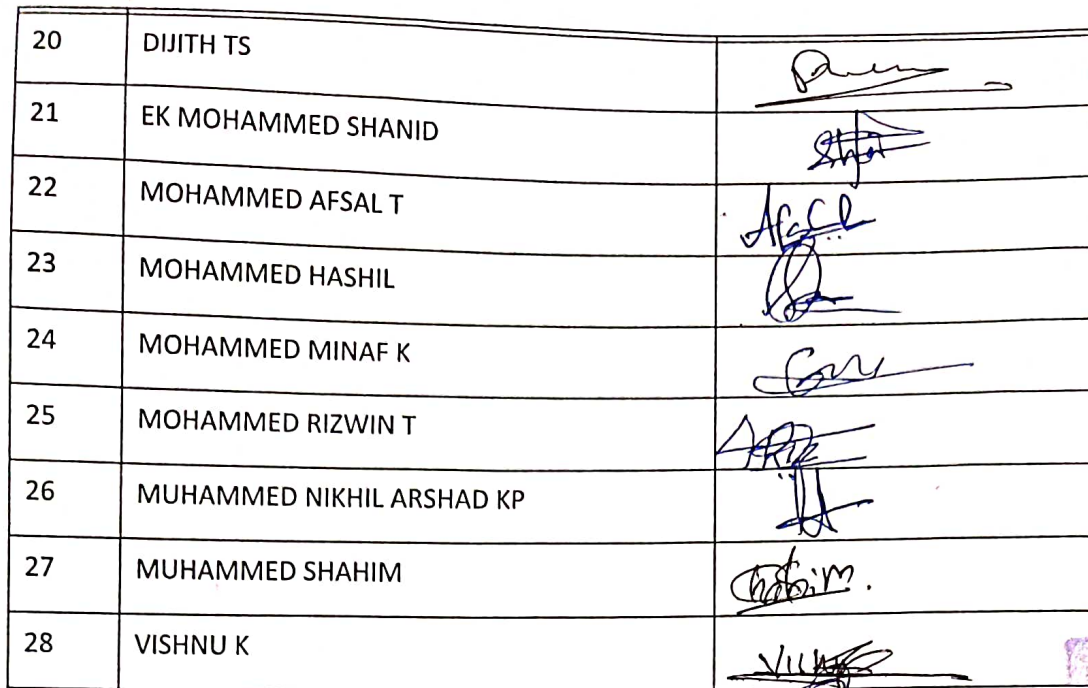 20 DIJITH TS
21 EK MOHAMMED SHANID
22 MOHAMMED AFSAL T
23 MOHAMMED HASHIL
24 MOHAMMED MINAF K
25 MOHAMMED RIZWIN T
26 MUHAMMED NIKHIL ARSHAD KP
27 MUHAMMED SHAHIM
28 VISHNU K